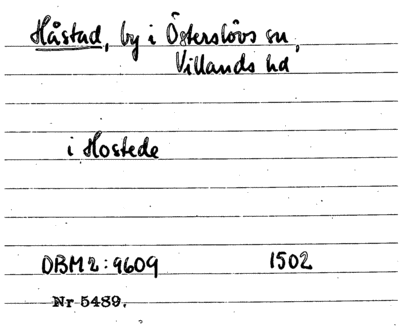 Håstad, by i Österslövs sn,
Villands hd
i Hostede
DBM2:9609 1502
Nr 5489.